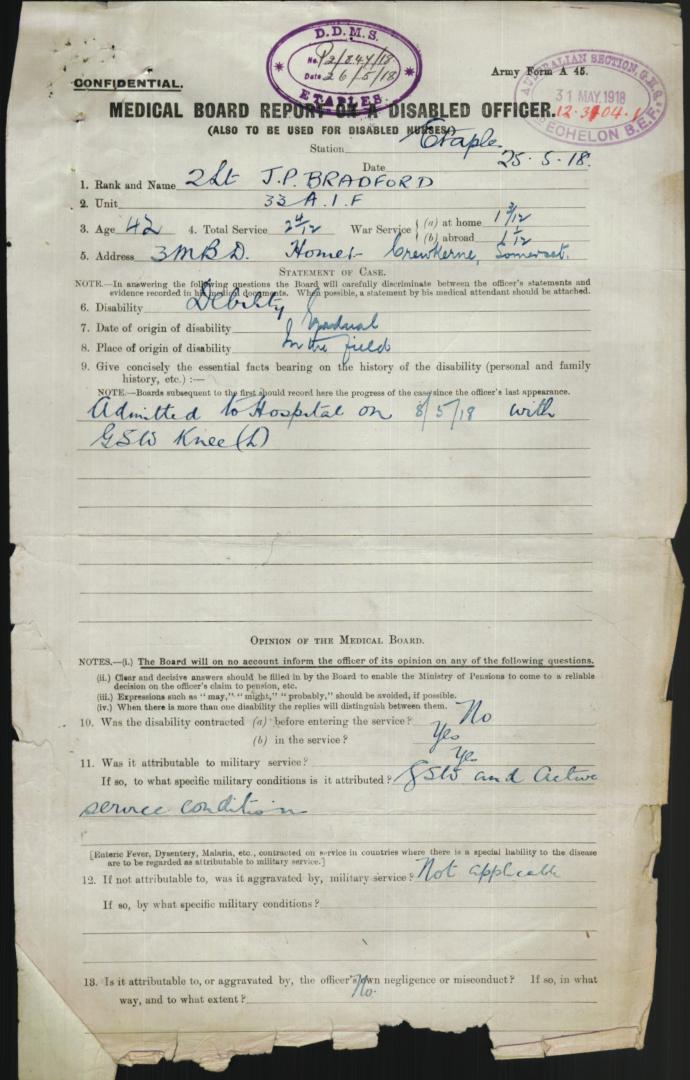 D.D.M.S.
No. P2/844/18
Date 26/5/18
ETAPLES
CONFIDENTIAL.
Army Form A 45.
AUSTRALIAN SECTION, G.H.Q.,
31 MAY. 1918
ECHELON B.E.F.
MEDICAL BOARD REPORT ON A DISABLED OFFICER.
(ALSO TO BE USED FOR DISABLED NURSES.)
Station Etaples
Date 25.5.18.
1. Rank and Name 2Lt J.P. BRADFORD
2. Unit 33 A.I.F
3. Age 42 4. Total Service 2 4/12 War Service { (a) at home 1 3/12
(b) abroad 1 1/12
5. Address 3 MBD. Home :- Crewkerne, Somerset.
STATEMENT OF CASE.
NOTE.—In answering the following questions the Board will carefully discriminate between the officer's statements and
evidence recorded in his medical documents. When possible, a statement by his medical attendant should be attached.
6. Disability Debility
7. Date of origin of disability Gradual
8. Place of origin of disability In the field
9. Give concisely the essential facts bearing on the history of the disability (personal and family
history, etc.) :—
NOTE.—Boards subsequent to the first should record here the progress of the case since the officer's last appearance.
Admitted to Hospital on 8/5/18 with
GSW Knee (L)
OPINION OF THE MEDICAL BOARD.
NOTES.—(i.) The Board will on no account inform the officer of its opinion on any of the following questions.
(ii.) Clear and decisive answers should be filled in by the Board to enable the Ministry of Pensions to come to a reliable
decision on the officer's claim to pension, etc.
(iii.) Expressions such as "may," "might," "probably," should be avoided, if possible.
(iv.) When there is more than one disability the replies will distinguish between them.
10. Was the disability contracted (a) before entering the service? No
(b) in the service? Yes
11. Was it attributable to military service? Yes
If so, to what specific military conditions is it attributed? GSW and Active
service condition
[Enteric Fever, Dysentery, Malaria, etc., contracted on service in countries where there is a special liability to the disease
are to be regarded as attributable to military service.]
12. If not attributable to, was it aggravated by, military service? Not applicable
If so, by what specific military conditions?
13. Is it attributable to, or aggravated by, the officer's own negligence or misconduct? If so, in what
way, and to what extent? No.